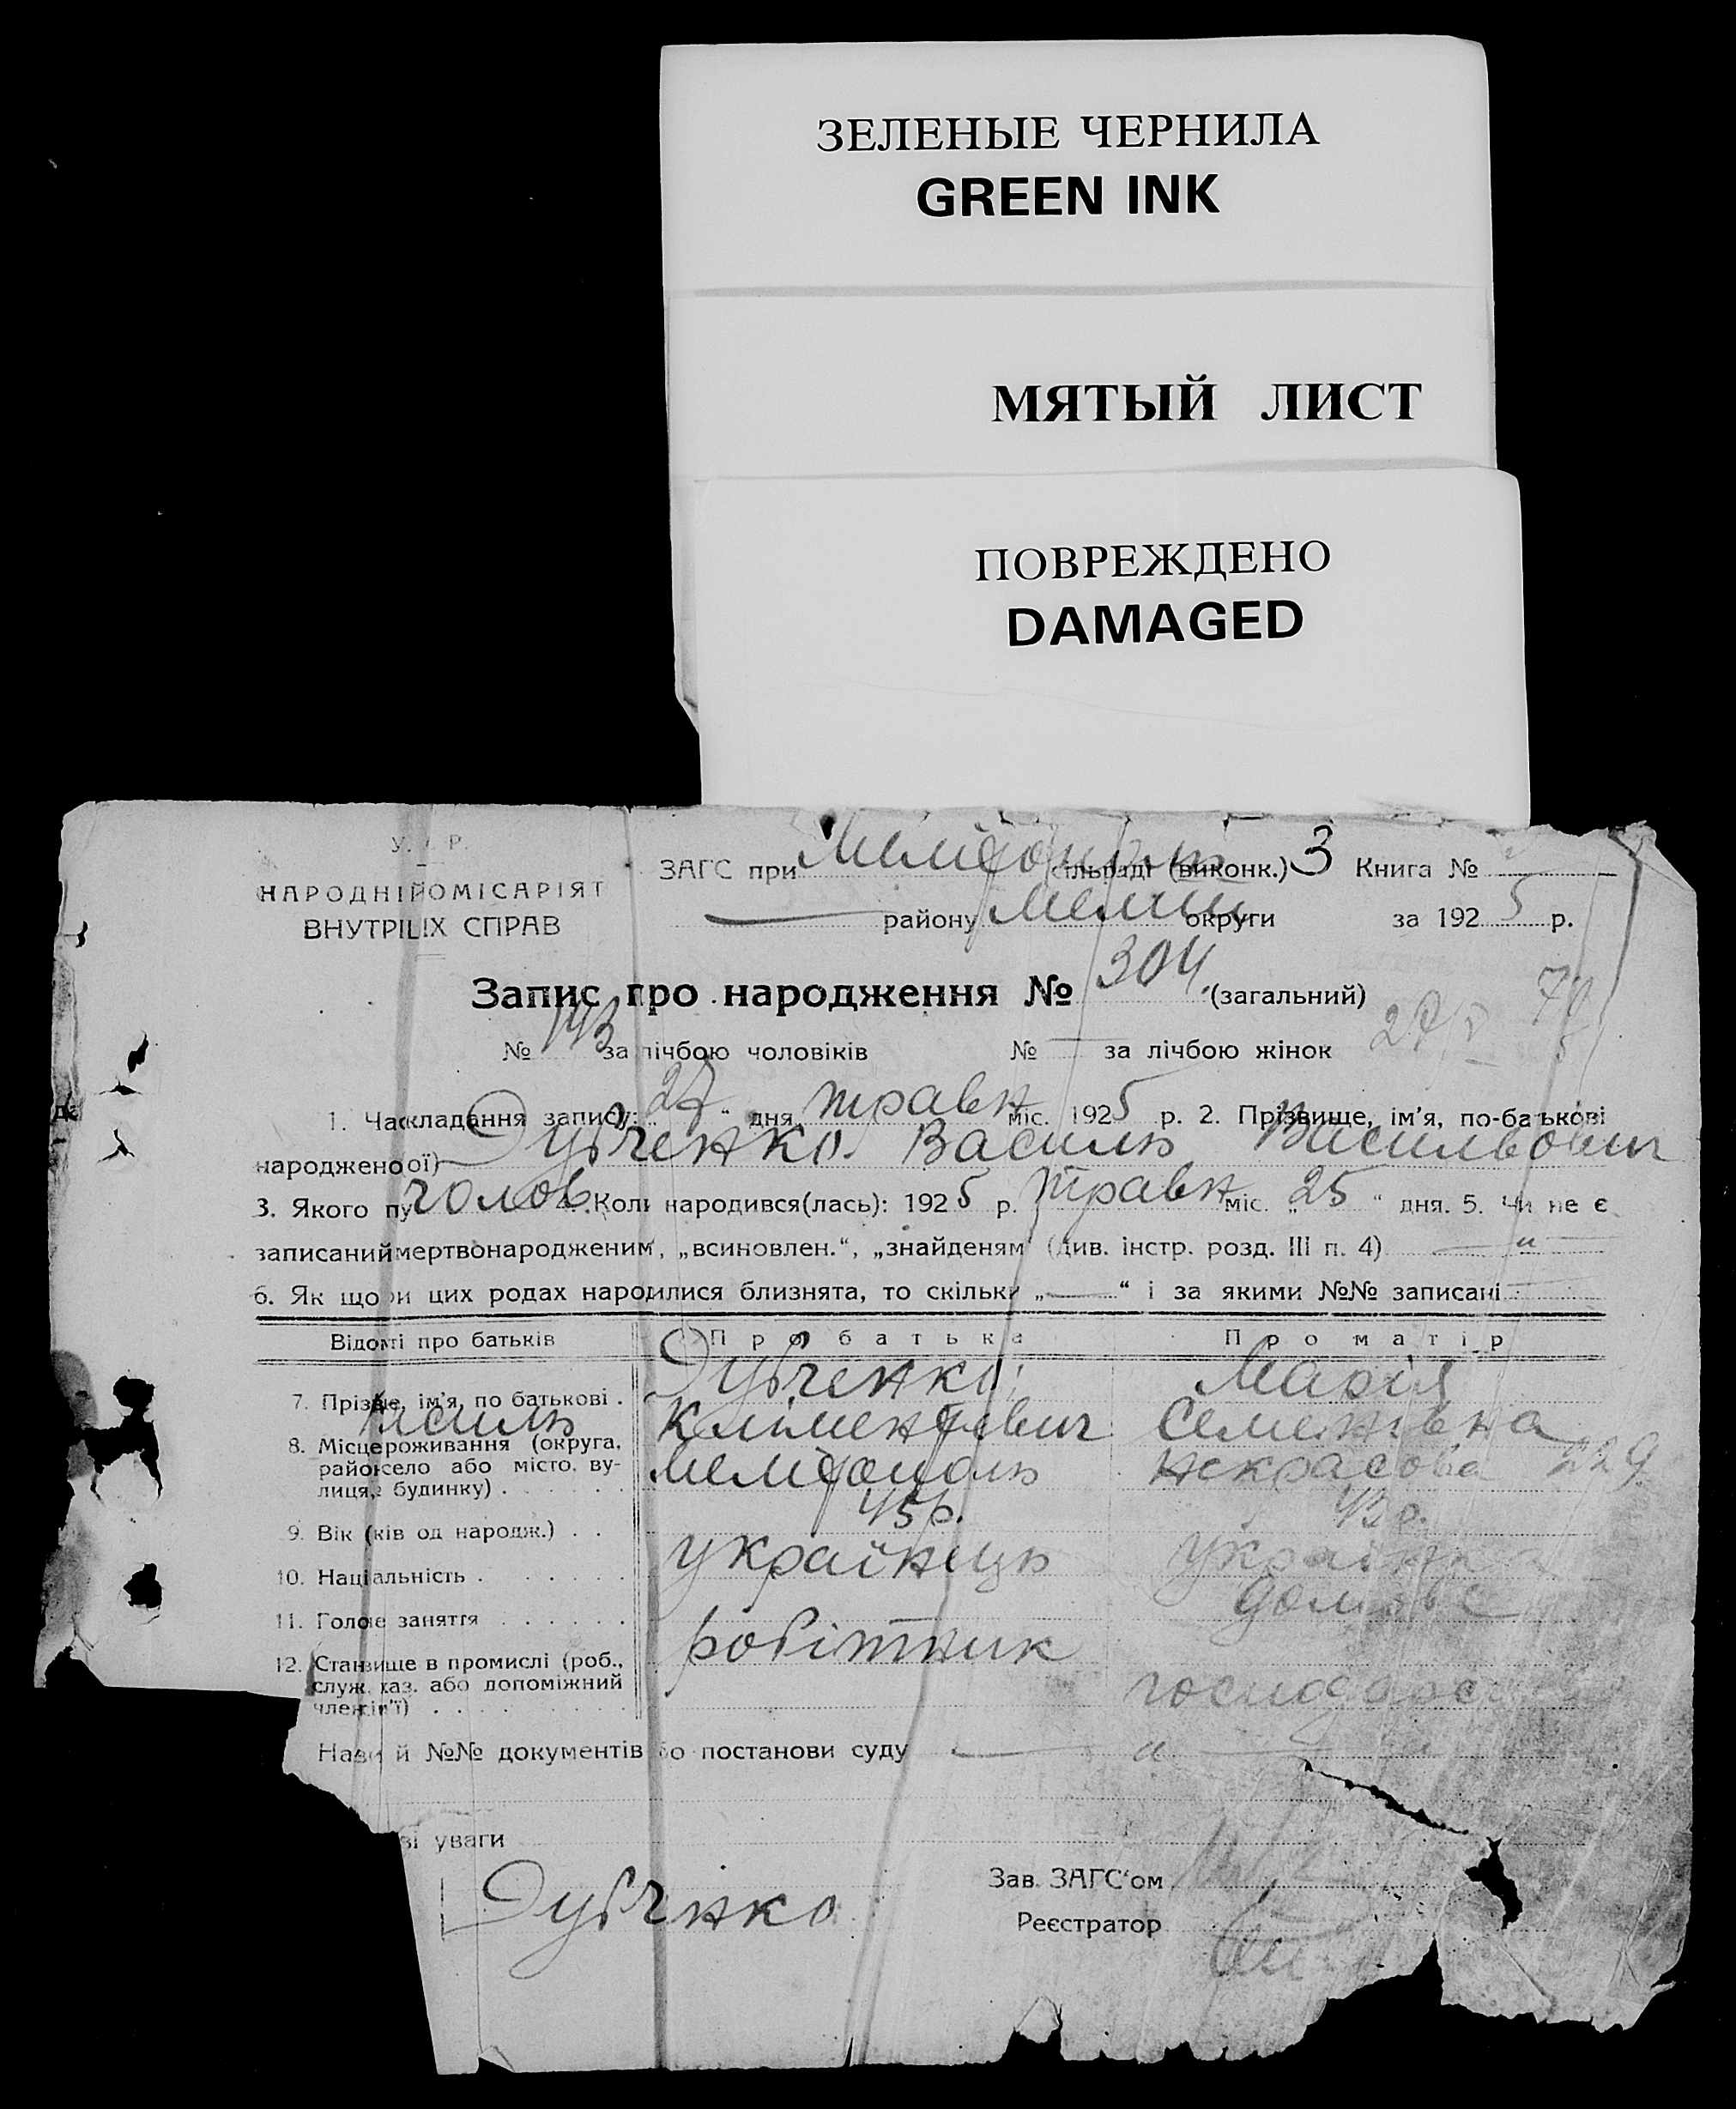 ЗЕЛЕНЫЕ ЧЕРНИЛА
GREEN INK
МЯТЫЙ ЛИСТ
ПОВРЕЖДЕНО
DAMAGED
У. Р.
ЗАГС при Мелітополь сільраді (виконк.) 3 Книга №
НАРОДНІЙ ОМІСАРІЯТ
ВНУТРІШ ІХ СПРАВ
— району Мелит округи за 1925 р.
Запис про народження № 304 (загальний)
№ 143 за лічбою чоловіків № — за лічбою жінок 27/V 70
1. Час складання запису: 27 " дня травн міс. 1925 р. 2. Прізвище, ім'я, по-батькові
народженого ої) Дубченко Василь Васильович
3. Якого пу чолов. 4. Коли народився(лась): 1925 р. травн міс. „ 25 " дня. 5. Чи не є
записаний мертвонародженим, „всиновлен.“, „знайденям (див. інстр. розд. III п. 4) — " —
6. Як що ри цих родах народилися близнята, то скільки „—“ і за якими №№ записані
Відомі про батьків Про батька Про матір
Дубченко Марія
7. Прізвіе, ім'я, по батькові .
Василь Кліментьевич Семенівна
8. Місце роживання (округа,
район село або місто, ву- Мелітополь Некрасова 229
лиця, будинку) . . . . . .
45 р. 43 р.
9. Вік (ків од народж.) . .
українець українка
10. Наці альність . . . . . .
домове
11. Голов е заняття . . . . . .
робітник
12. Стан вище в промислі (роб.,
служ. хаз. або допоміжний господарс
член сім'ї) . . . .
Нав и й №№ документів бо постанови суду — " —
ві уваги
Зав. ЗАГС'ом
Дубченко
Реєстратор